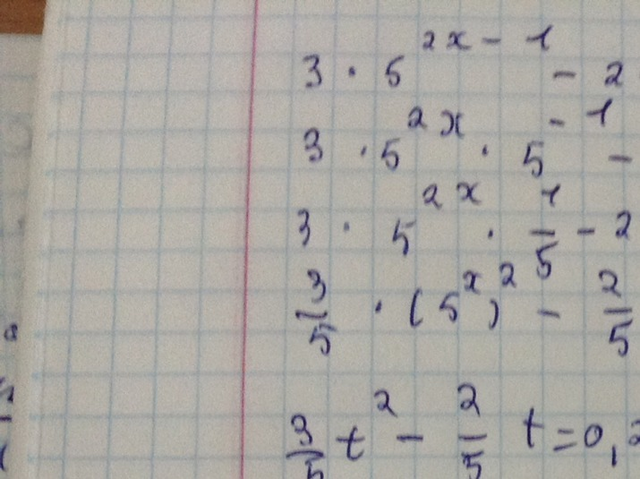 3 · 5^{2x-1} - 2
3 · 5^{2x} · 5^{-1} -
3 · 5^{2x} · \frac{1}{5} - 2
\frac{3}{5} · (5^x)^2 - \frac{2}{5}
\frac{3}{5} t^2 - \frac{2}{5} t = 0,2